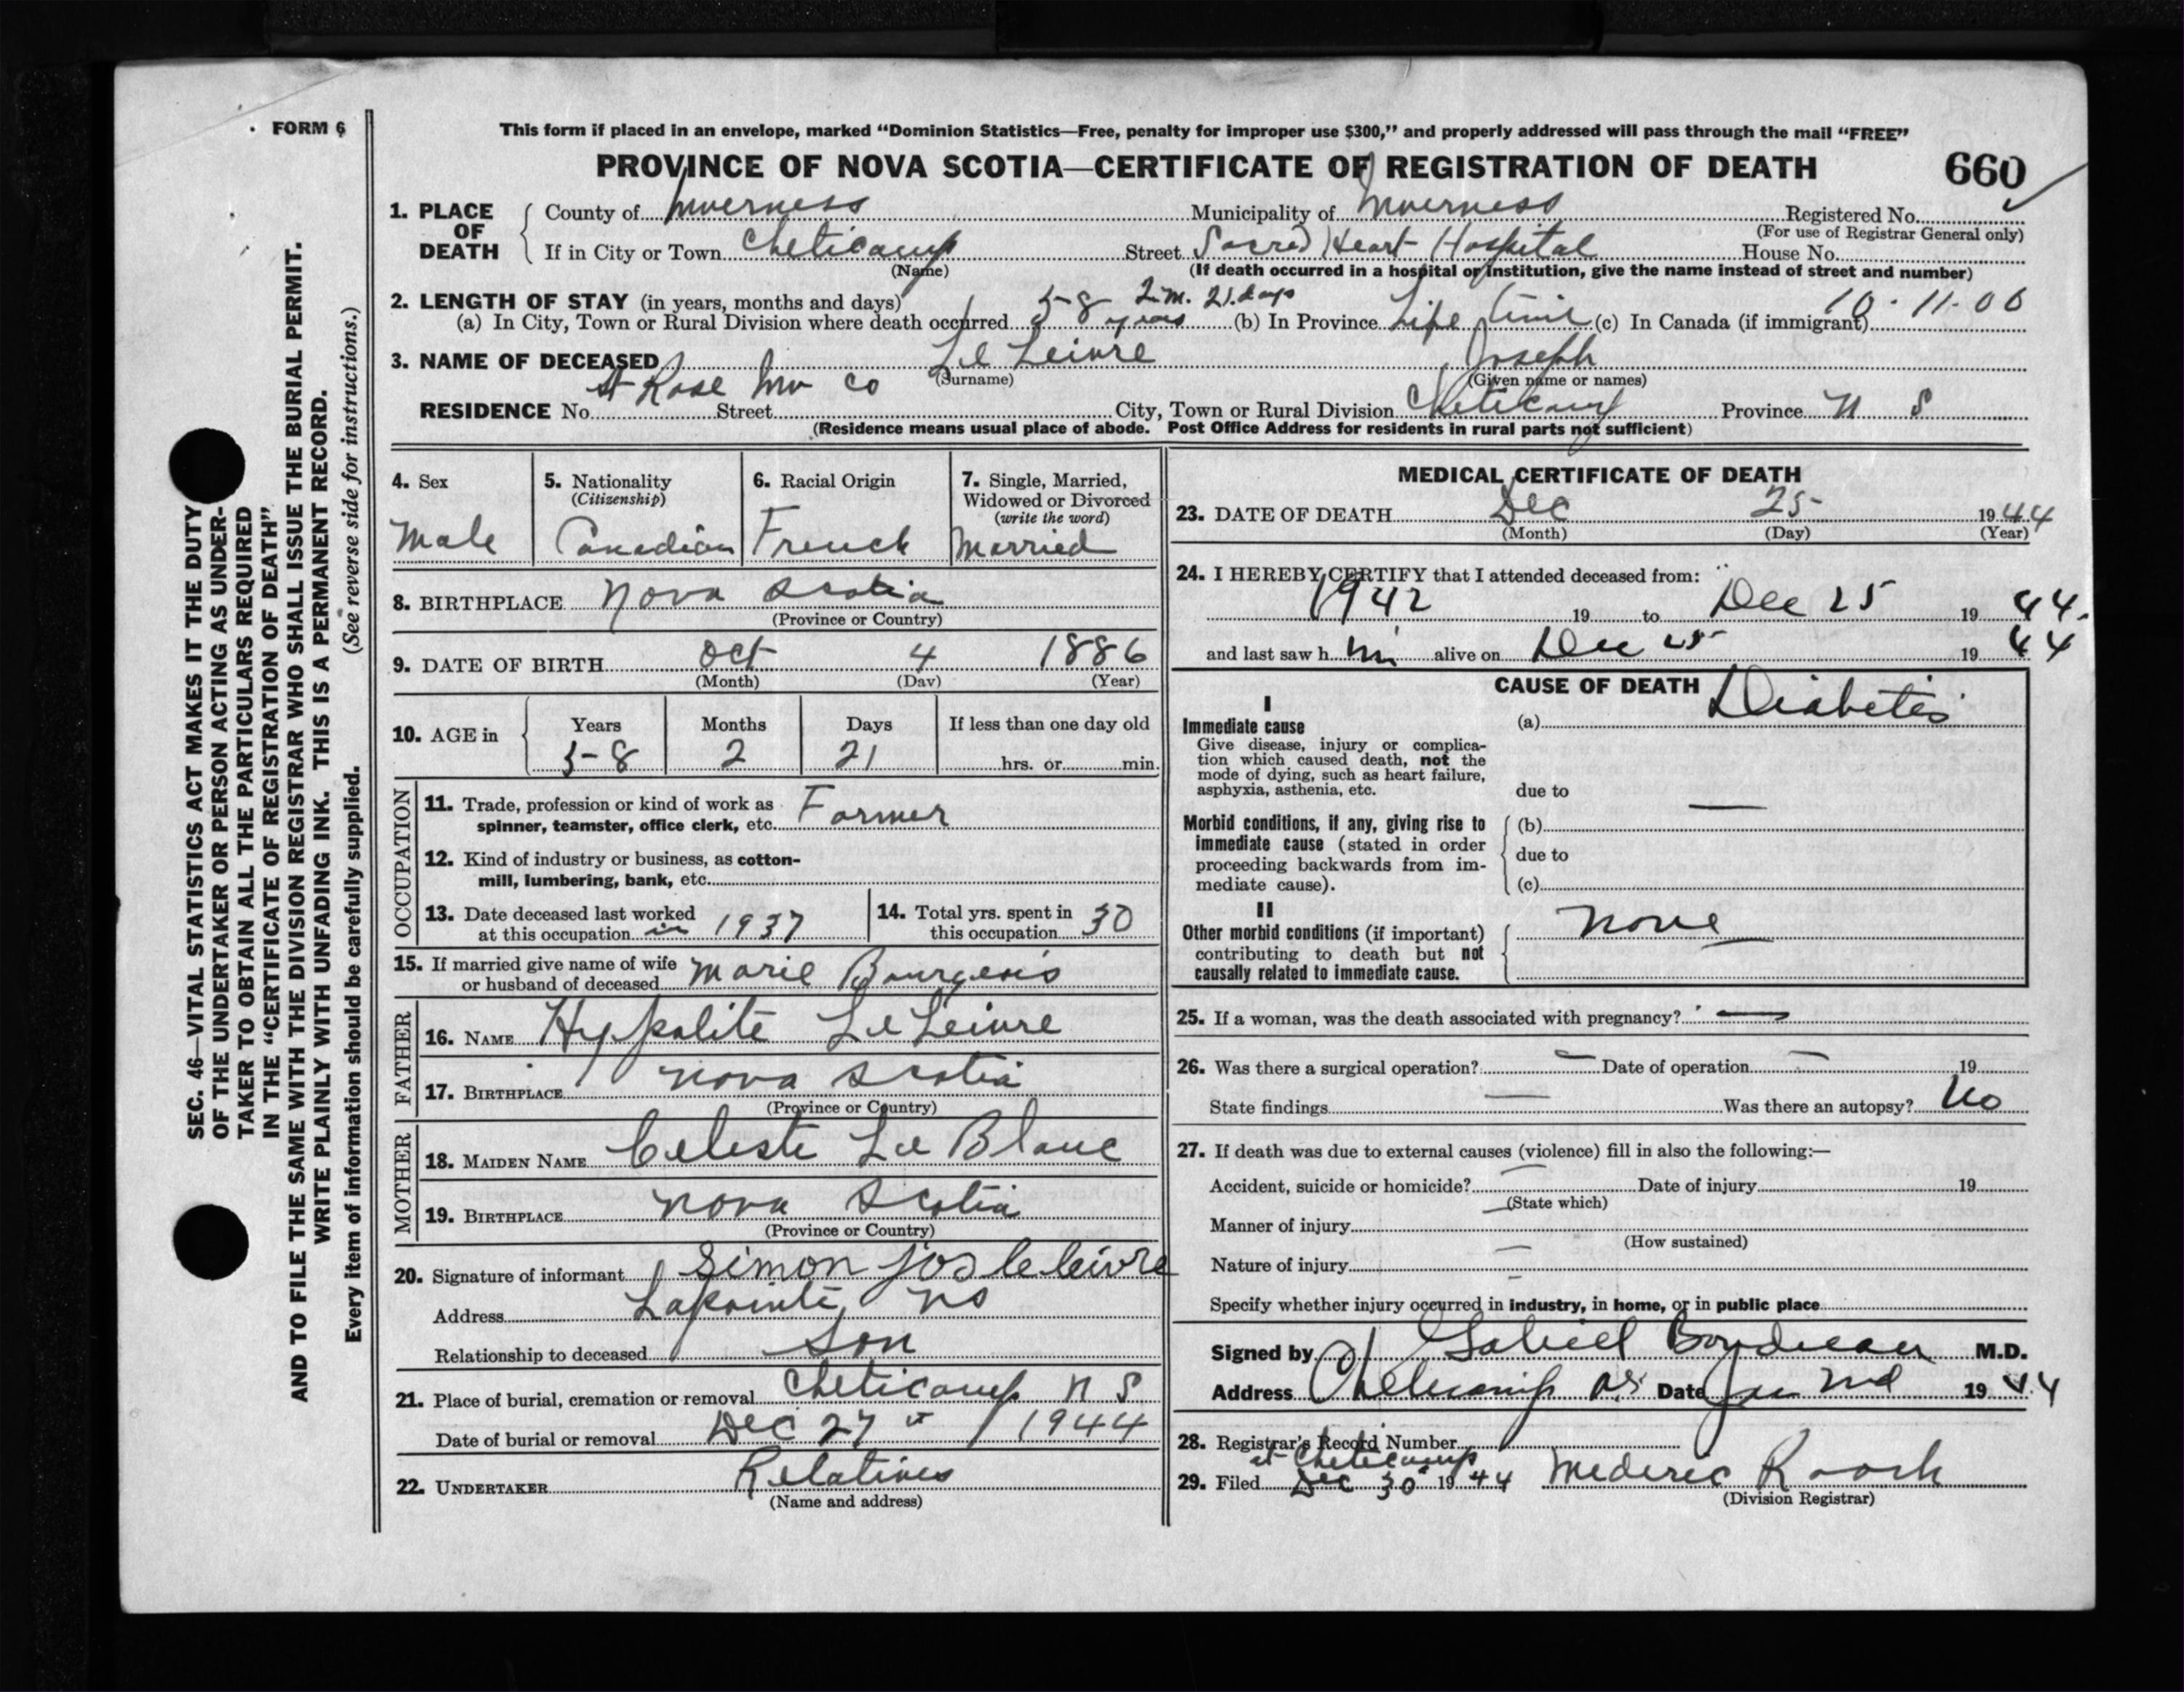 FORM 6
This form if placed in an envelope, marked “Dominion Statistics—Free, penalty for improper use $300,” and properly addressed will pass through the mail “FREE”
PROVINCE OF NOVA SCOTIA—CERTIFICATE OF REGISTRATION OF DEATH 660
1. PLACE OF DEATH
County of Inverness Municipality of Inverness Registered No.
(For use of Registrar General only)
If in City or Town Cheticamp Street Sacred Heart Hospital House No.
(Name) (If death occurred in a hospital or institution, give the name instead of street and number)
2. LENGTH OF STAY (in years, months and days)
(a) In City, Town or Rural Division where death occurred 58 years 2 m. 21 days (b) In Province Life time (c) In Canada (if immigrant) 10-11-00
3. NAME OF DECEASED Le Leivre Joseph
(Surname) (Given name or names)
St Rose Inv Co
RESIDENCE No. Street City, Town or Rural Division Cheticamp Province N S
(Residence means usual place of abode. Post Office Address for residents in rural parts not sufficient)
4. Sex
Male
5. Nationality
(Citizenship)
Canadian
6. Racial Origin
French
7. Single, Married,
Widowed or Divorced
(write the word)
Married
8. BIRTHPLACE Nova Scotia
(Province or Country)
9. DATE OF BIRTH Oct 4 1886
(Month) (Day) (Year)
10. AGE in
Years Months Days If less than one day old
58 2 21 hrs. or min.
OCCUPATION
11. Trade, profession or kind of work as
spinner, teamster, office clerk, etc. Farmer
12. Kind of industry or business, as cotton-
mill, lumbering, bank, etc.
13. Date deceased last worked
at this occupation in 1937
14. Total yrs. spent in
this occupation 30
15. If married give name of wife
or husband of deceased Marie Bourgeois
FATHER
16. NAME Hyppolite Le Leivre
17. BIRTHPLACE Nova Scotia
(Province or Country)
MOTHER
18. MAIDEN NAME Celeste Le Blanc
19. BIRTHPLACE Nova Scotia
(Province or Country)
20. Signature of informant Simon Jos leleivre
Address Lapointe, NS
Relationship to deceased Son
21. Place of burial, cremation or removal Cheticamp N S
Date of burial or removal Dec 27 1944
22. UNDERTAKER Relatives
(Name and address)
MEDICAL CERTIFICATE OF DEATH
23. DATE OF DEATH Dec 25 1944
(Month) (Day) (Year)
24. I HEREBY CERTIFY that I attended deceased from:
1942 19 to Dec 25 19 44.
and last saw him alive on Dec 25 19 44
CAUSE OF DEATH
I
Immediate cause
Give disease, injury or complica-
tion which caused death, not the
mode of dying, such as heart failure,
asphyxia, asthenia, etc.
(a) Diabetes
due to —
Morbid conditions, if any, giving rise to
immediate cause (stated in order
proceeding backwards from im-
mediate cause).
(b)
due to
(c)
II
Other morbid conditions (if important)
contributing to death but not
causally related to immediate cause.
None
25. If a woman, was the death associated with pregnancy? —
26. Was there a surgical operation? — Date of operation — 19
State findings — Was there an autopsy? No
27. If death was due to external causes (violence) fill in also the following:—
Accident, suicide or homicide? — Date of injury 19
(State which)
Manner of injury —
(How sustained)
Nature of injury —
Specify whether injury occurred in industry, in home, or in public place
Signed by Gabriel Boudreau M.D.
Address Cheticamp NS Date Jan 2nd 19 44
28. Registrar's Record Number
at Cheticamp
29. Filed Dec 30 1944 Mederic Roach
(Division Registrar)
SEC. 46—VITAL STATISTICS ACT MAKES IT THE DUTY
OF THE UNDERTAKER OR PERSON ACTING AS UNDER-
TAKER TO OBTAIN ALL THE PARTICULARS REQUIRED
IN THE “CERTIFICATE OF REGISTRATION OF DEATH”
AND TO FILE THE SAME WITH THE DIVISION REGISTRAR WHO SHALL ISSUE THE BURIAL PERMIT.
WRITE PLAINLY WITH UNFADING INK. THIS IS A PERMANENT RECORD.
Every item of information should be carefully supplied. (See reverse side for instructions.)